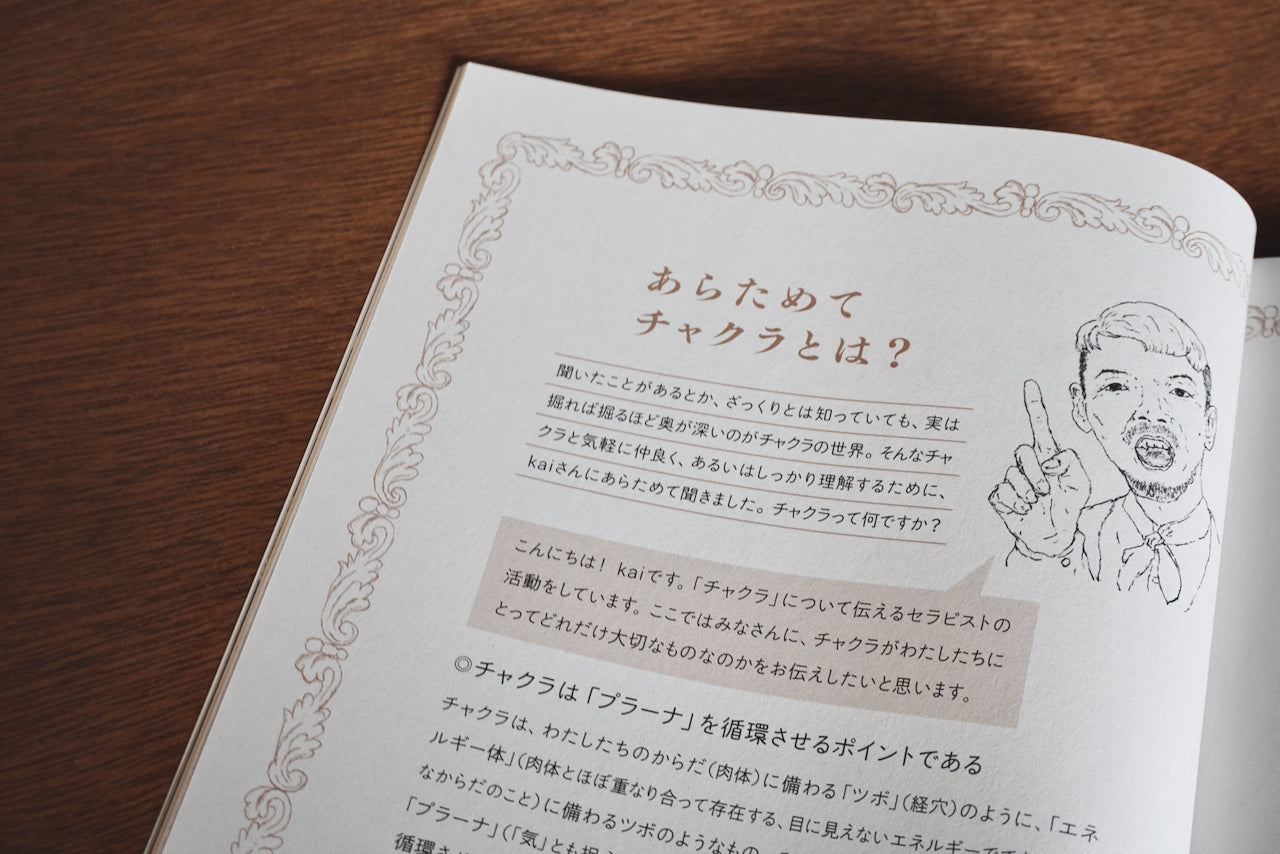 あらためて
チャクラとは?
聞いたことがあるとか、ざっくりとは知っていても、実は
掘れば掘るほど奥が深いのがチャクラの世界。そんなチャ
クラと気軽に仲良く、あるいはしっかり理解するために、
kaiさんにあらためて聞きました。チャクラって何ですか?
こんにちは! kaiです。「チャクラ」について伝えるセラピストの
活動をしています。ここではみなさんに、チャクラがわたしたちに
とってどれだけ大切なものなのかをお伝えしたいと思います。
◎チャクラは「プラーナ」を循環させるポイントである
チャクラは、わたしたちのからだ(肉体)に備わる「ツボ」(経穴)のように、「エネ
ルギー体」(肉体とほぼ重なり合って存在する、目に見えないエネルギーで
なからだのこと)に備わるツボのようなもの
「プラーナ」(「気」とも
循環さ